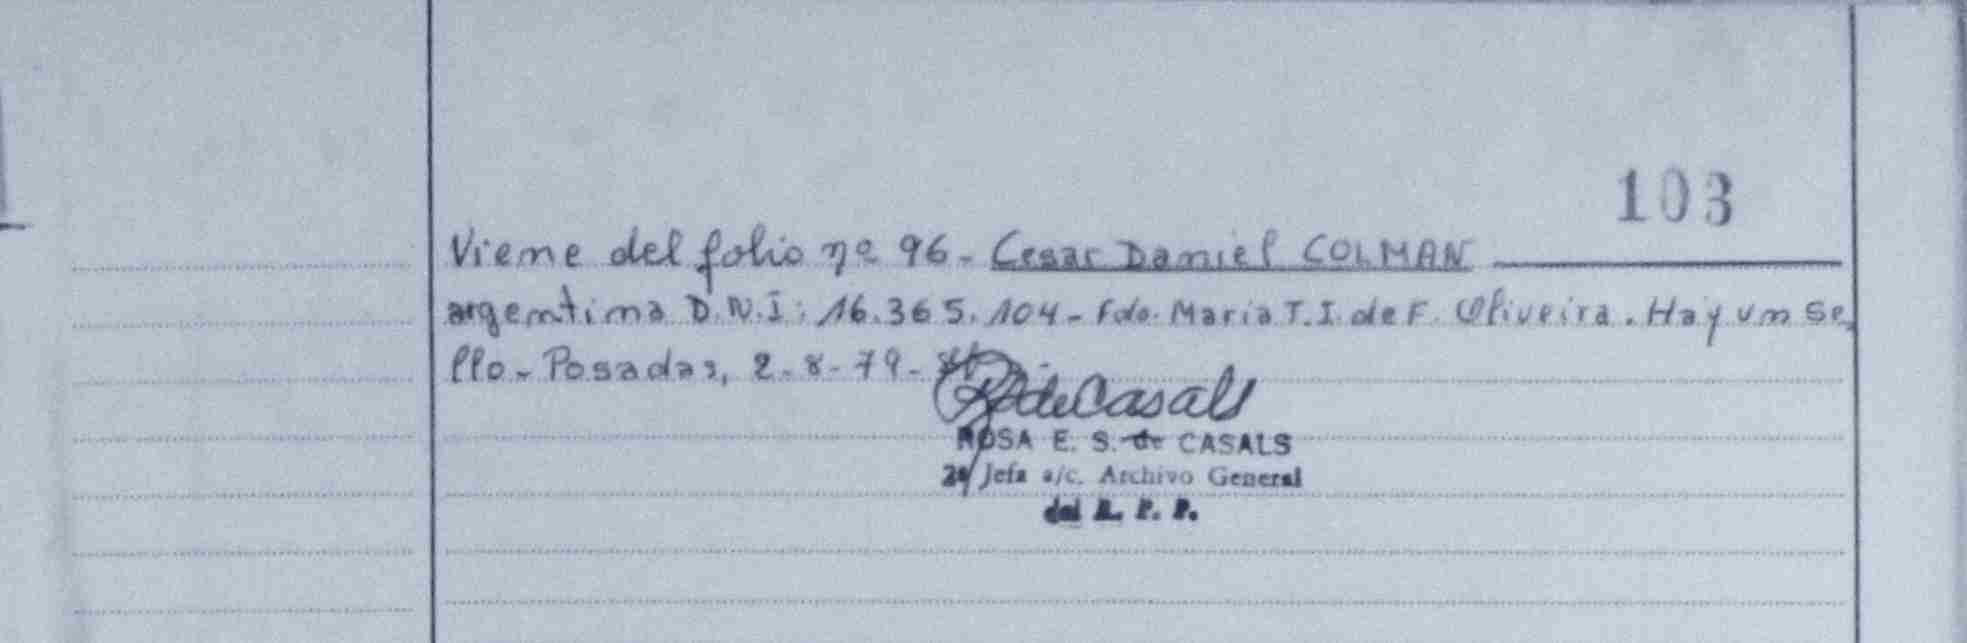 103
Viene del folio nº 96- Cesar Daniel COLMAN
argentina D.N.I: 16.365.104- Fdo. Maria T.I. de F. Oliveira. Hay un se
llo- Posadas, 2-8-79-
de Casals
ROSA E. S. de CASALS
2ª Jefa a/c. Archivo General
del R. P. P.